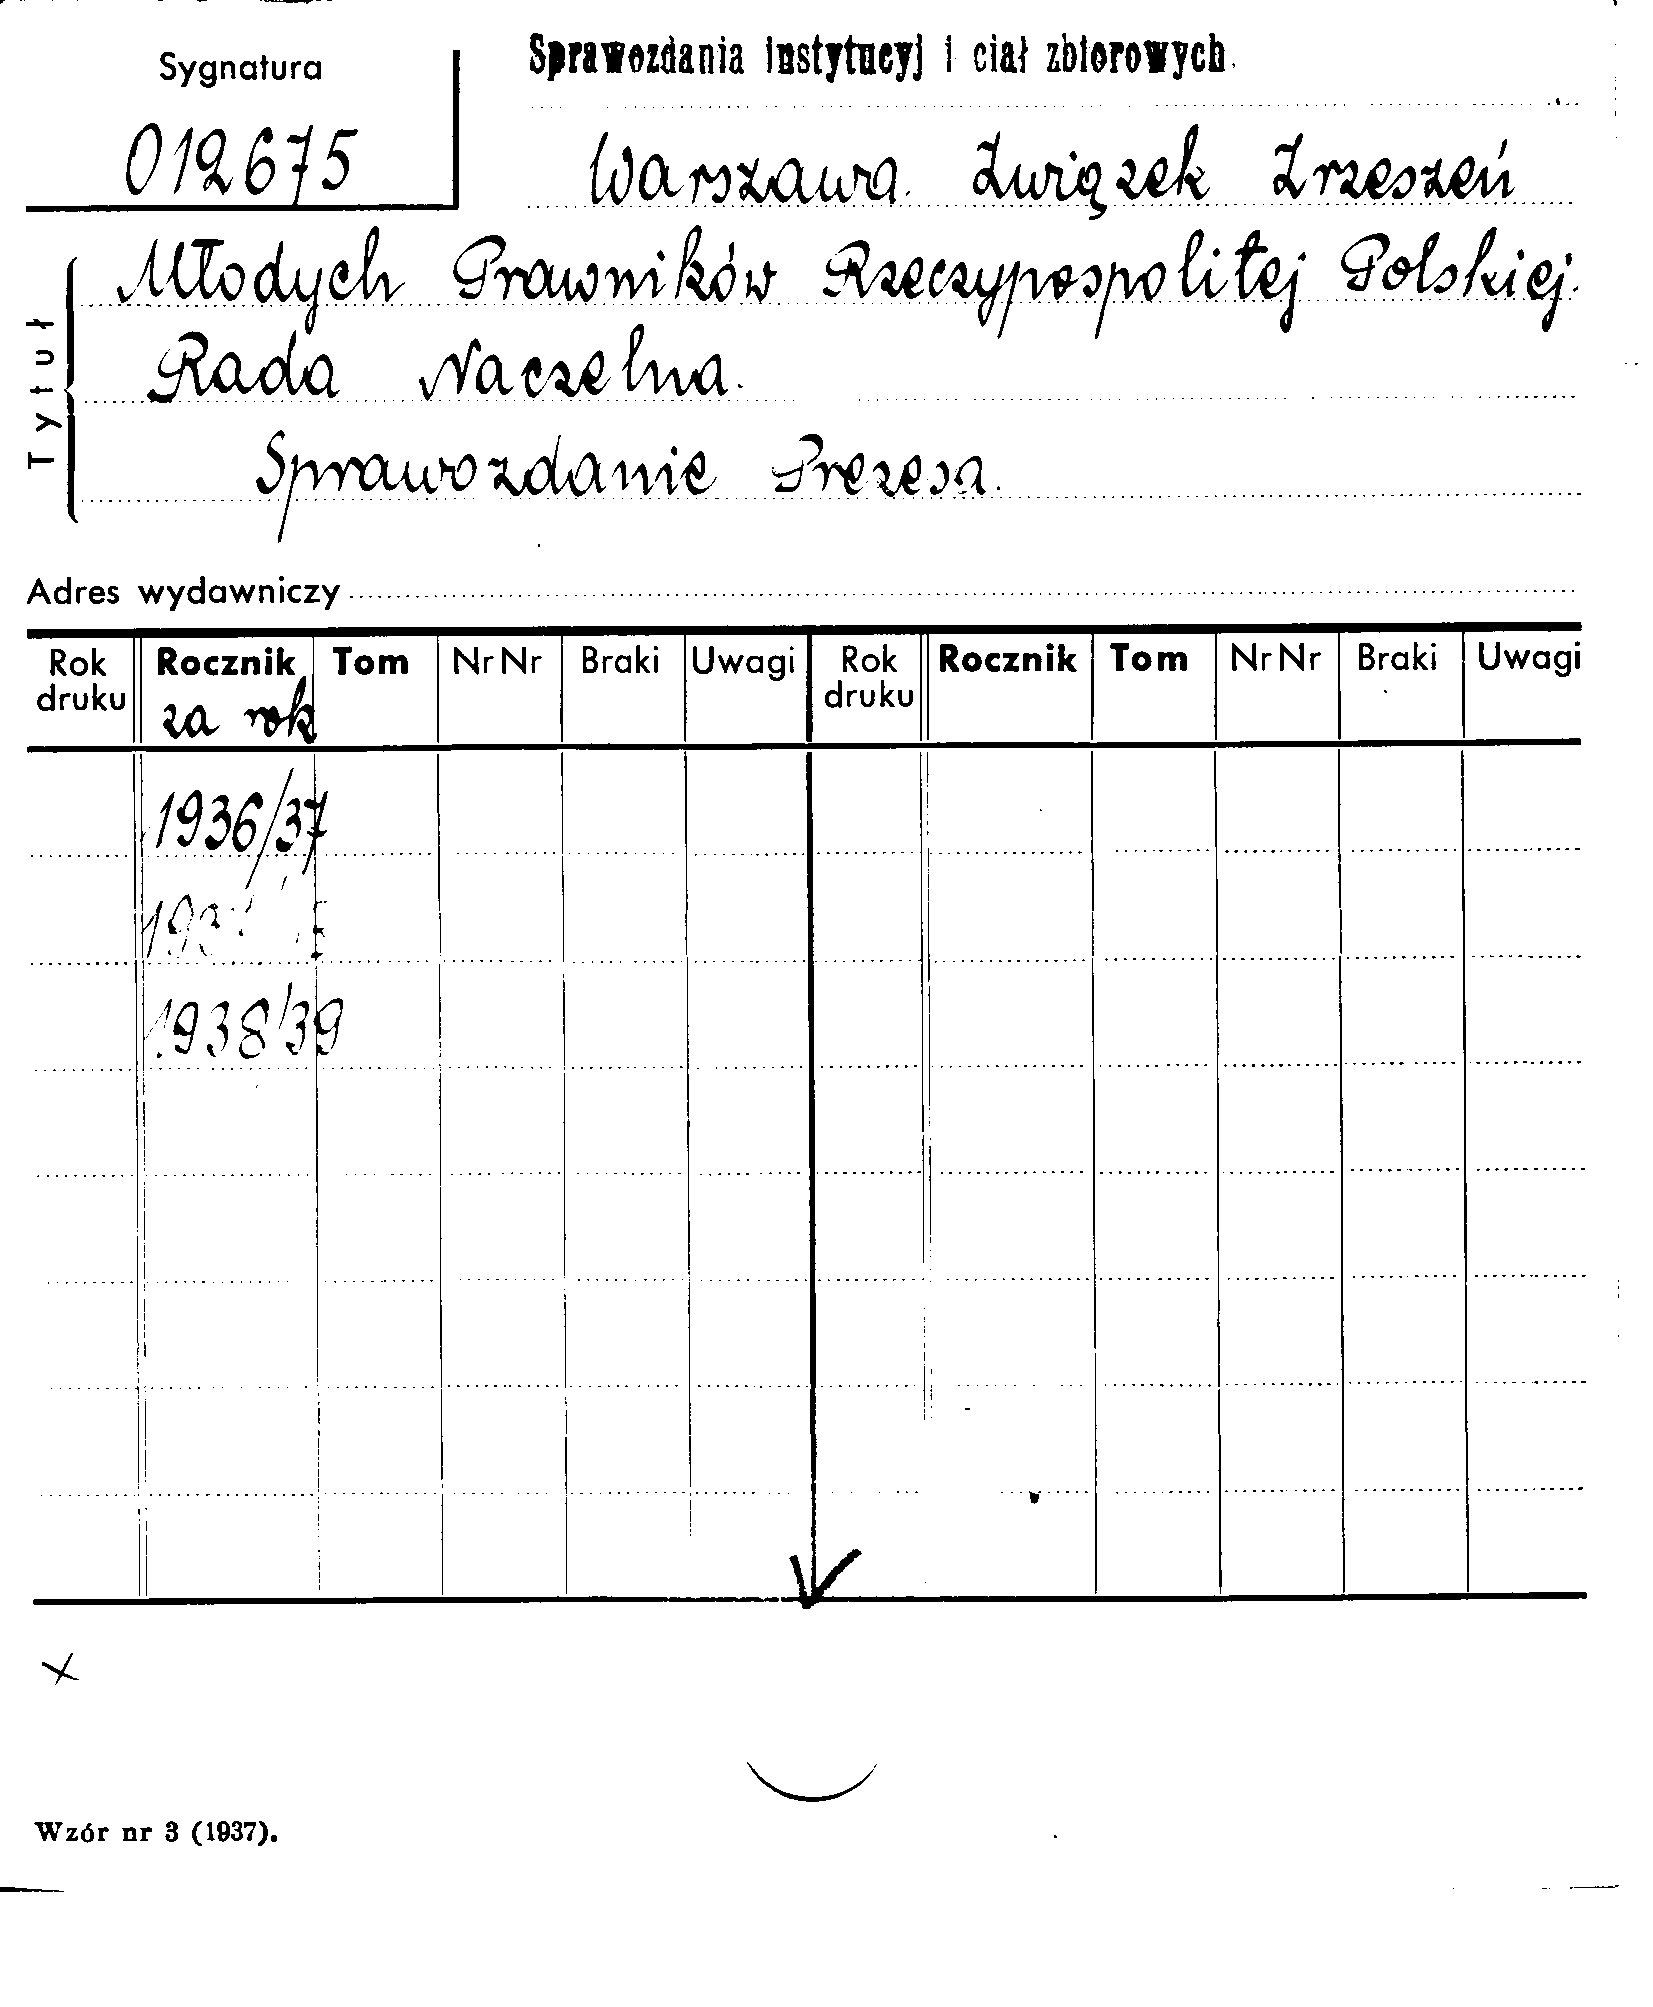 Sygnatura
Sprawozdania instytucyj i ciał zbiorowych.
012675
Warszawa. Związek Zrzeszeń
Młodych Prawników Rzeczypospolitej Polskiej.
Rada Naczelna.
Sprawozdanie Prezesa.
Tytuł
Adres wydawniczy
Rok druku Rocznik Tom Nr Nr Braki Uwagi Rok druku Rocznik Tom Nr Nr Braki Uwagi
za rok
1936/37
1938/39
Wzór nr 3 (1937).